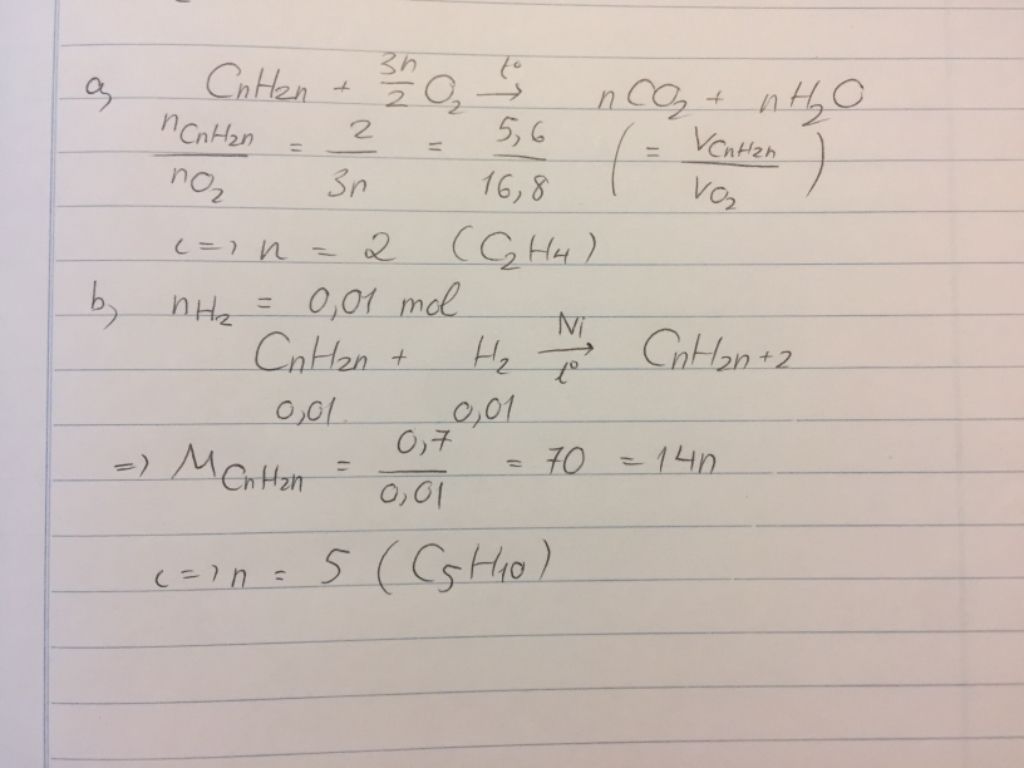 a, CnH2n + 3n/2 O2 t° → nCO2 + nH2O
nCnH2n / nO2 = 2 / 3n = 5,6 / 16,8 ( = VCnH2n / VO2 )
<=> n = 2 (C2H4)
b, nH2 = 0,01 mol
CnH2n + H2 Ni → t° CnH2n+2
0,01 0,01
=> MCnH2n = 0,7 / 0,01 = 70 = 14n
<=> n = 5 (C5H10)